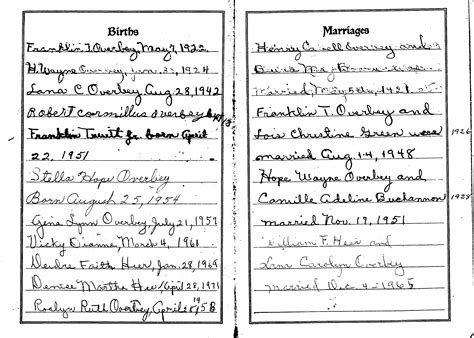 Births
Franklin T. Overbey, May 7, 1922
H. Wayne Overbey, 1924
Lana C Overbey Aug 28, 1942
Robert Overbey
Franklin Truitt Jr. born April
22, 1951
Stella Hope Overbey
Born August 25, 1954
Gina Lynn Overbey, July 21, 1957
Vicky Dianne, March 4, 1961
Deidre Faith Heer, Jan. 28, 1969
Denise Martha Heer, April 28, 1971
Roslyn Ruth Overbey, April 1958
Marriages
Henry Overbey and
married May
Franklin T. Overbey and
Lois Christine Green were 1926
married Aug 14, 1948
Hope Wayne Overbey and
Camille Adeline Buchannon 1928
married Nov. 19, 1951
William F. Heer and
Lana Carolyn Overbey
Married Dec. 4 - 1965